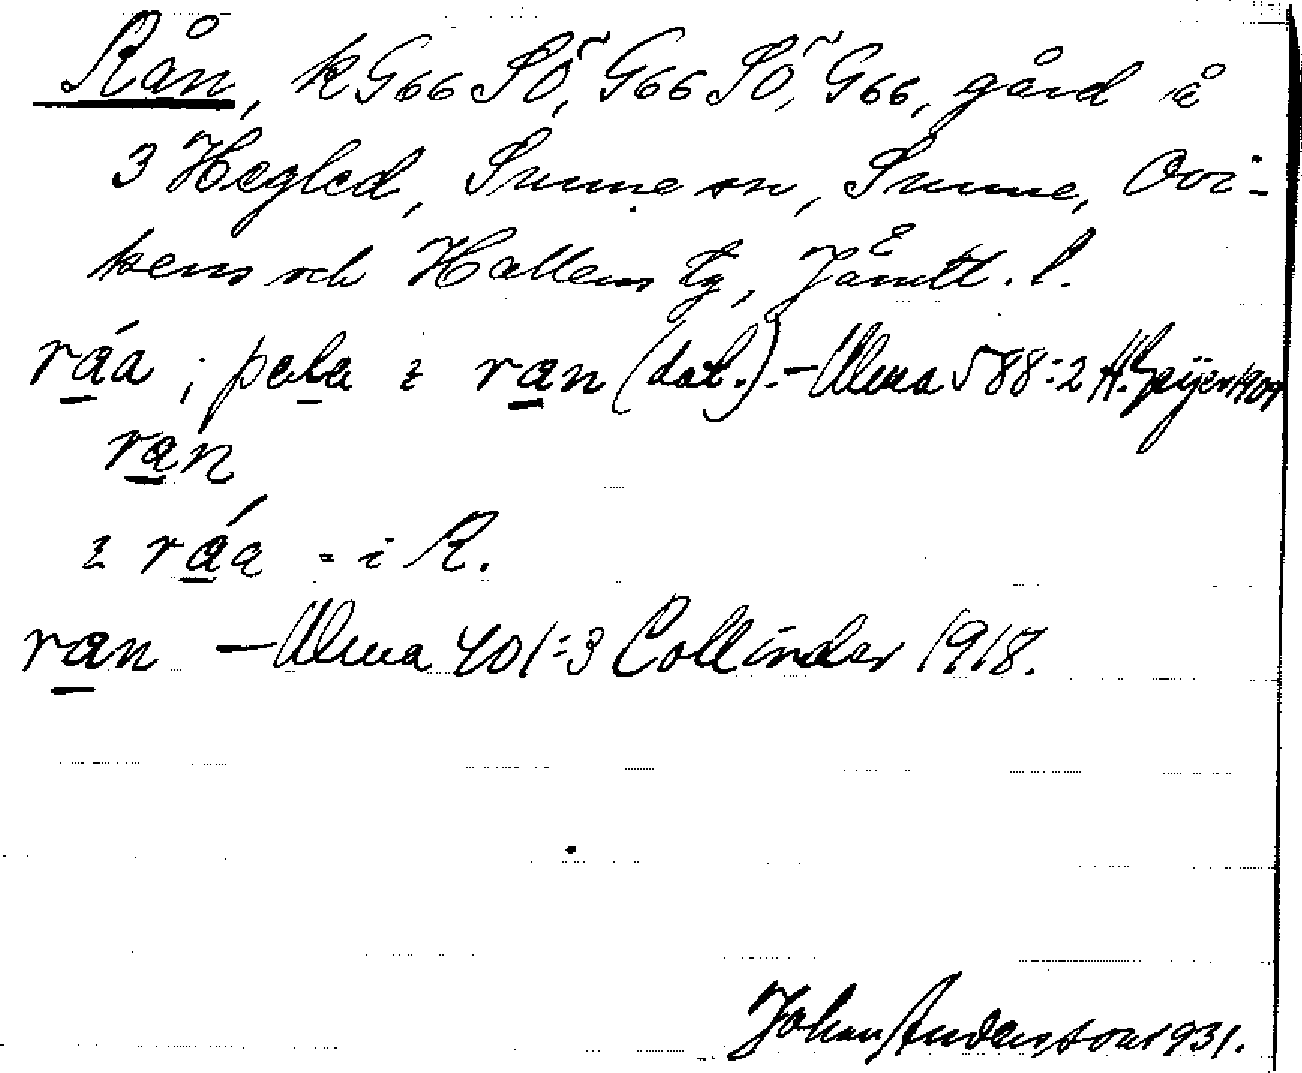 Rån, k G66 SÖ, G66 SÖ, G66, gård å
3 Hegled, Sunne sn, Sunne, Ovi-
kens och Hallens tg, Jämtl. l.
ráa ; pela i ran (dat.). - Ulma 588:2 H. Geijer 1907
ran
i ráa = i R.
ran - Ulma 401:3 Collinder 1918.
Johan Andersson 1931.